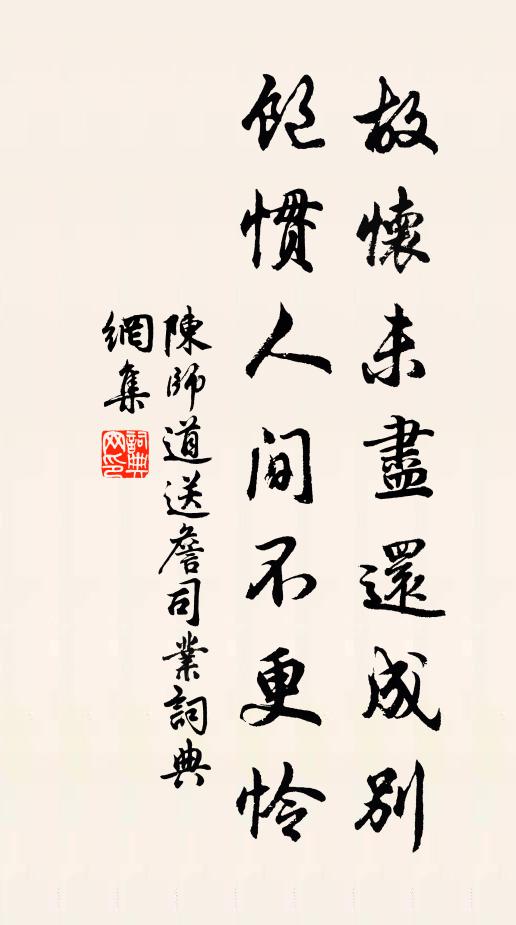 故懷未盡還成別
飽慣人間不更怜
陳師道送詹司業詞典
網集
詞典網印